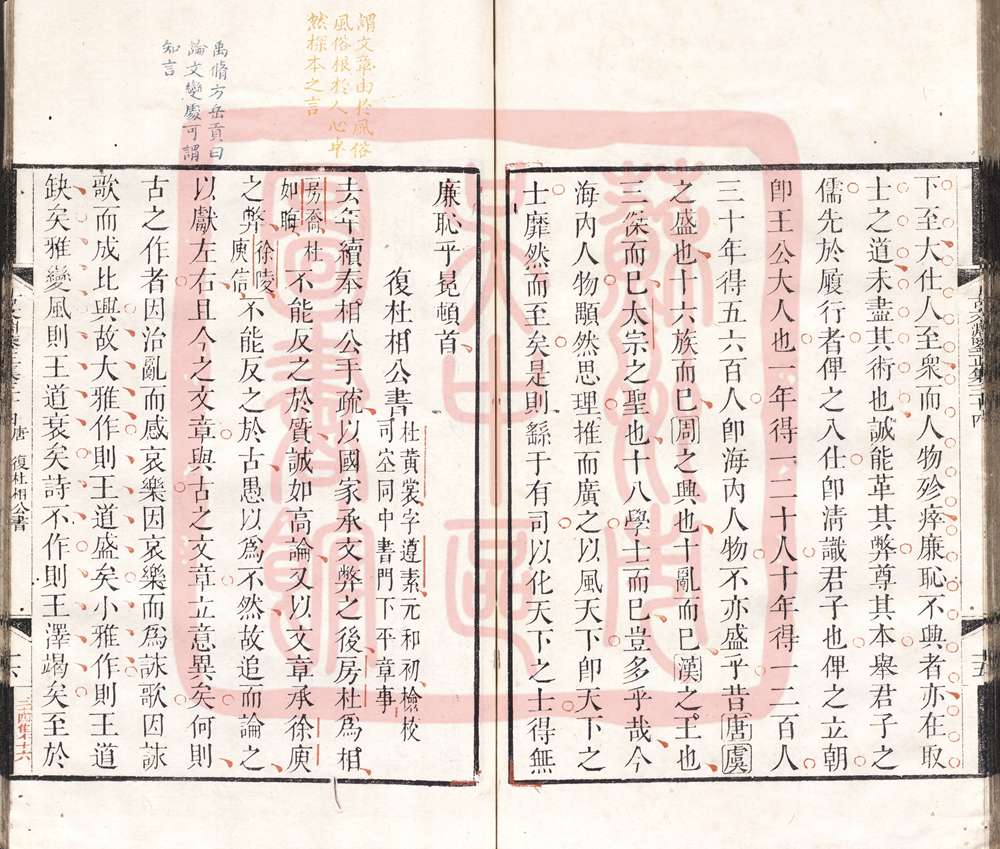 下至大仕人至衆而人物殄瘁廉恥不興者亦在取
士之道未盡其術也誠能革其弊尊其本舉君子之
儒先於履行者俾之入仕卽淸識君子也俾之立朝
卽王公大人也一年得一二十人十年得一二百人
三十年得五六百人卽海內人物不亦盛乎昔唐虞
之盛也十六族而已周之興也十亂而已漢之王也
三傑而已太宗之聖也十八學士而已豈多乎哉今
海內人物顒然思理推而廣之以風天下卽天下之
士靡然而至矣是則繇于有司以化天下之士得無
廉恥乎冕頓首
復杜相公書
杜黃裳字遵素元和初檢校
司空同中書門下平章事
去年續奉相公手疏以國家承文弊之後房杜爲相
房喬杜
如晦
不能反之於質誠如高論又以文章承徐庾
之弊
徐陵
庾信
不能反之於古愚以爲不然故追而論之
以獻左右且今之文章與古之文章立意異矣何則
古之作者因治亂而感哀樂因哀樂而爲詠歌因詠
歌而成比興故大雅作則王道盛矣小雅作則王道
缺矣雅變風則王道衰矣詩不作則王澤竭矣至於
謂文章由於風俗
風俗根於人心卓
然探本之言
禹脩方岳貢曰
論文變處可謂
知言
唐 復杜相公書